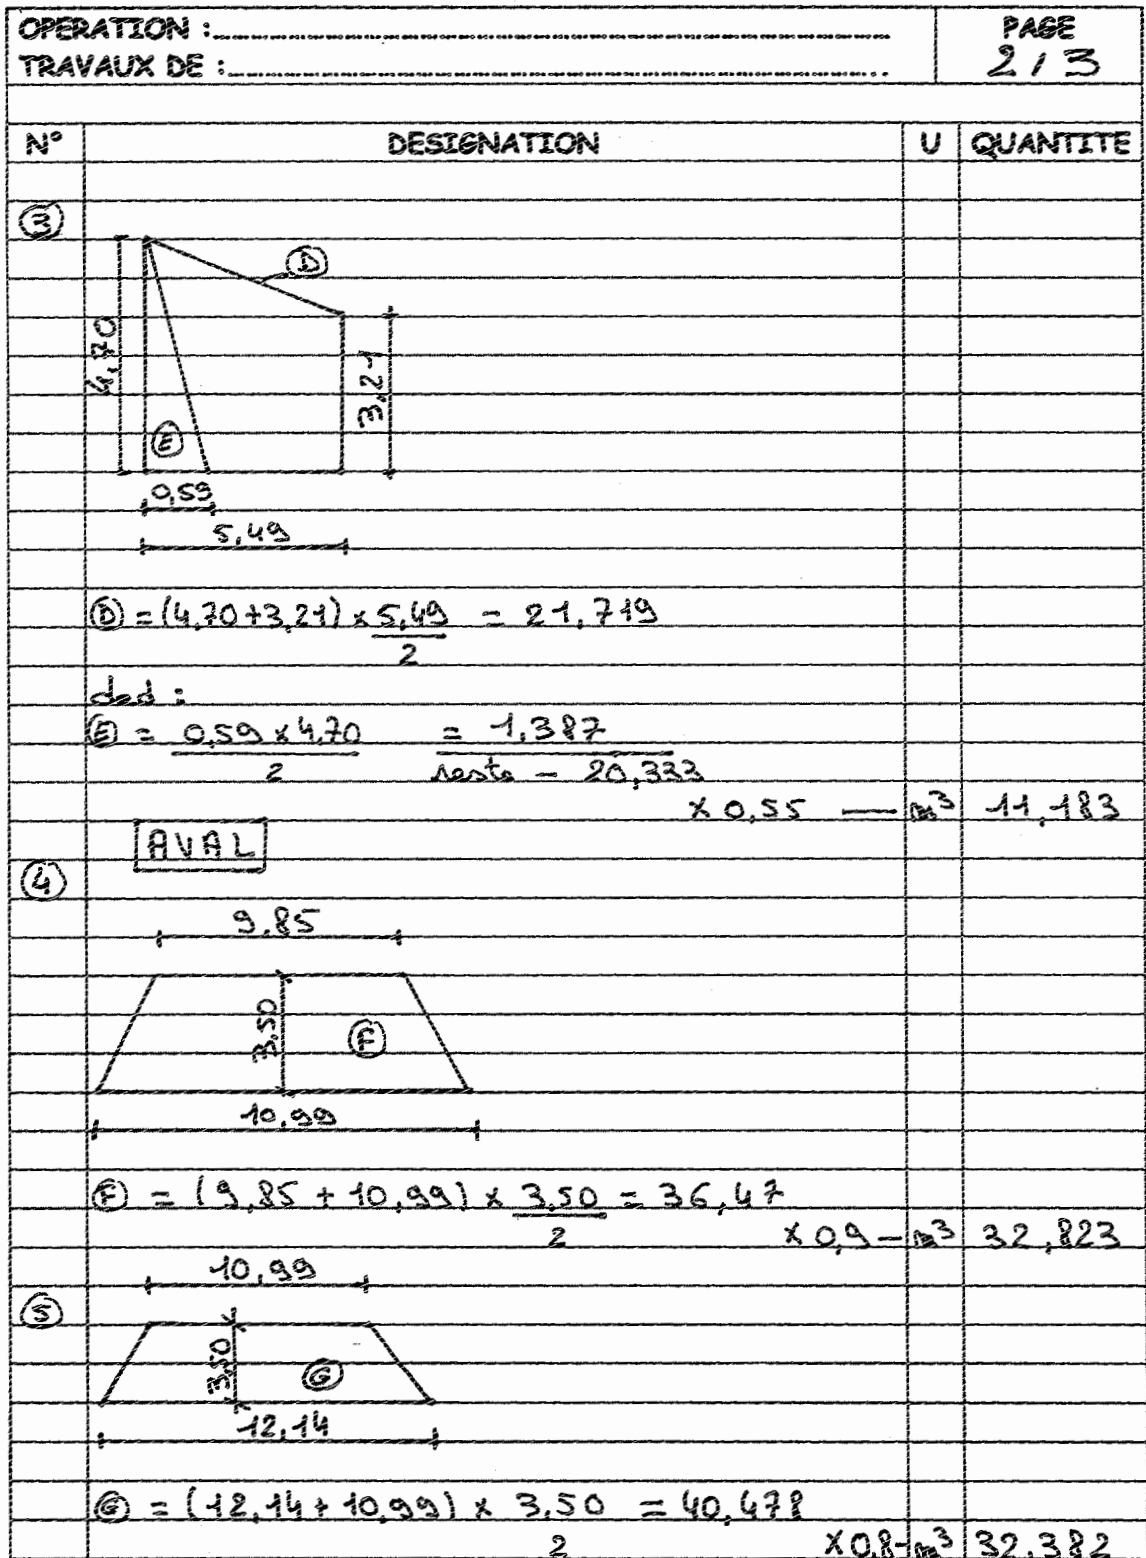 OPERATION :........ PAGE
TRAVAUX DE :........ 2 / 3
N° DESIGNATION U QUANTITE
3
D
4,70
3,21
E
0,59
5,49
D = (4,70+3,21) x 5,49 = 21,719
2
ded :
E = 0,59 x 4,70 = 1,387
2 reste - 20,333
x 0,55 — m³ 11,183
AVAL
4
9.85
3,50
F
10,99
F = (9,85 + 10,99) x 3,50 = 36,47
2 x 0,9 - m³ 32,823
10,99
5
3,50
G
12,14
G = (12,14 + 10,99) x 3.50 = 40,478
2 x 0,8 - m³ 32,382